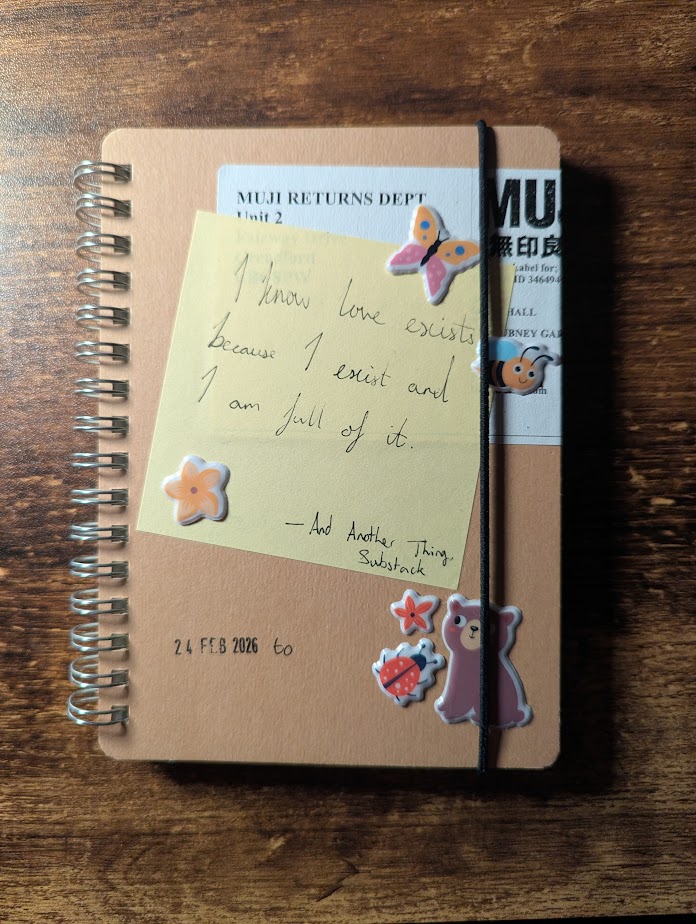 MUJI RETURNS DEPT
Unit 2
MU
無印良
Label for:
ID 346494
HALL
BNEY GA
I know love escists
because I escist and
I am full of it.
—And Another Thing,
Substack
24 FEB 2026 to